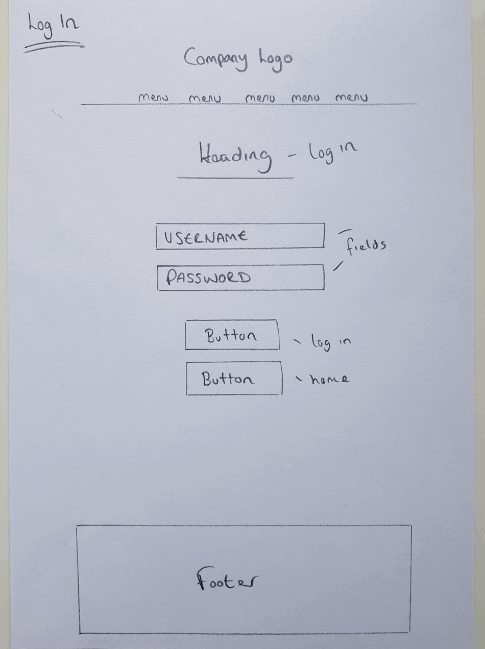 Log In
Company Logo
menu menu menu menu menu
Heading - Log in
USERNAME
fields
PASSWORD
Button
log in
Button
home
Footer